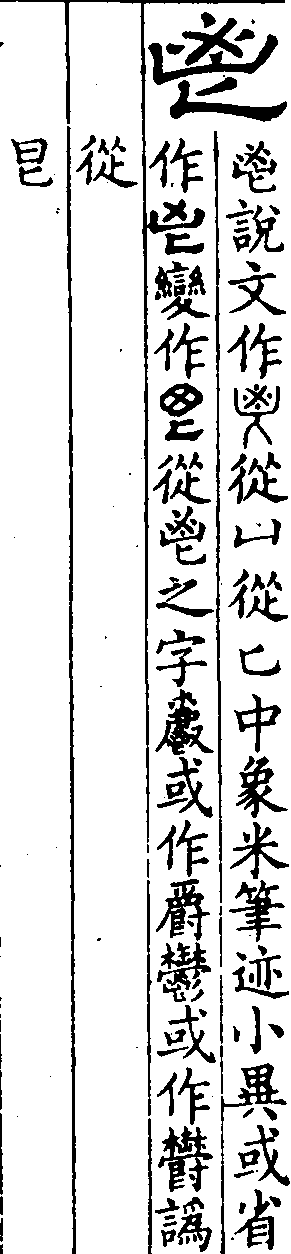 鬯
鬯說文作從凵從匕中象米筆迹小異或省
作變作從鬯之字或作爵鬱或作欝譌
從
㫐